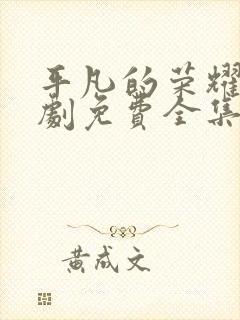 平凡的荣耀
劇免費全集
黄成文